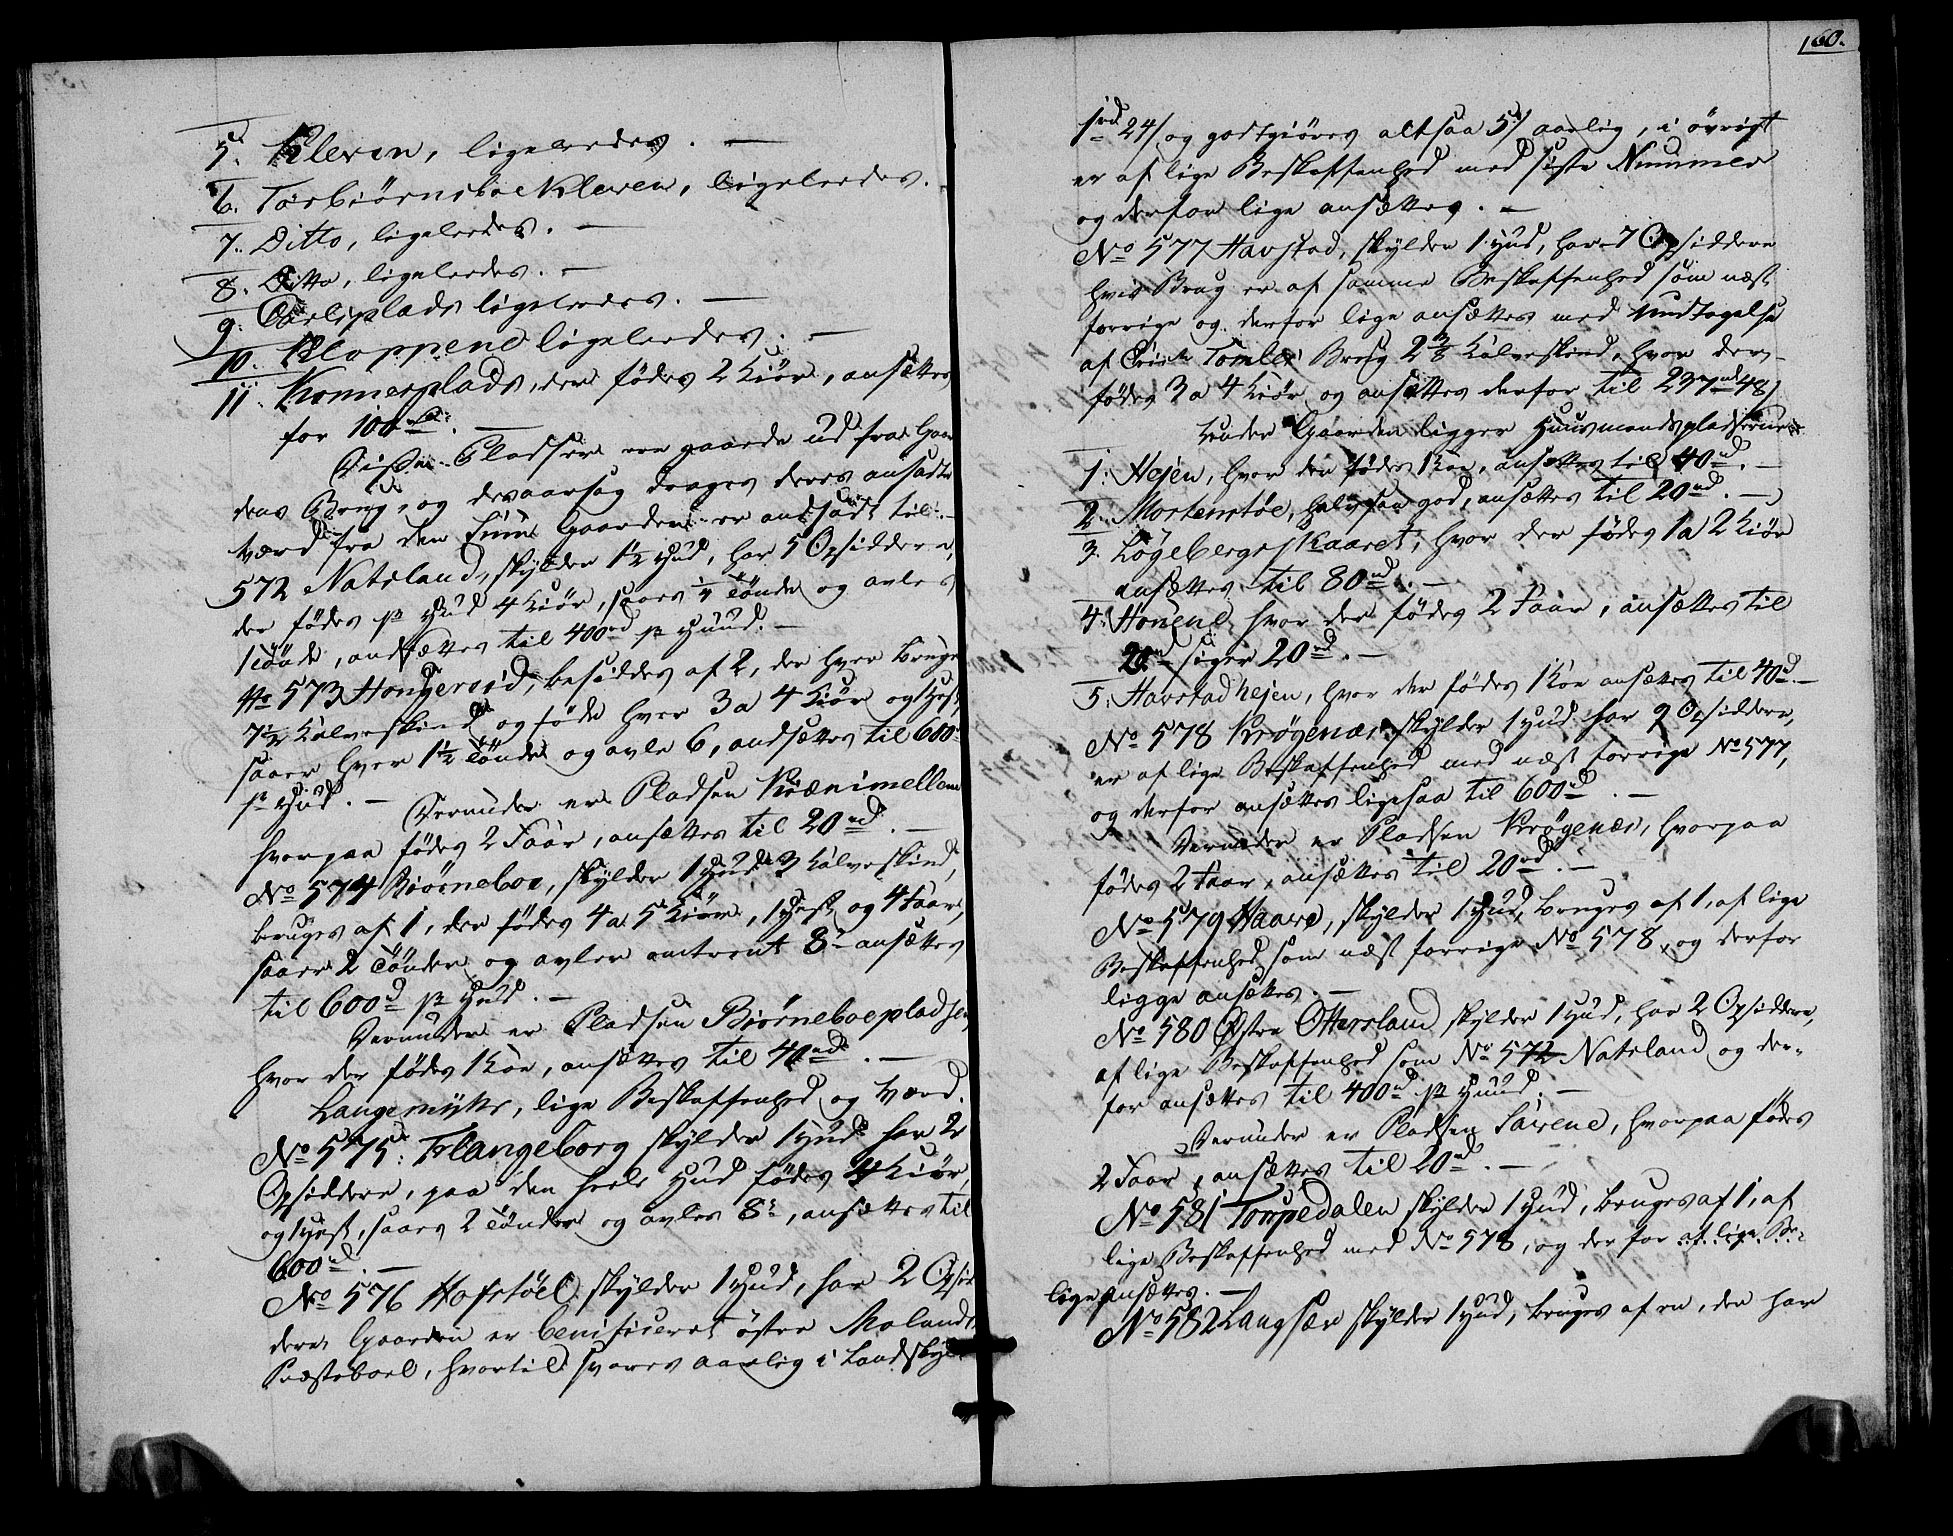 5. Kleven, ligeledes. —
6. Torbiørnsboe Kleven, ligeledes.
7. Ditto, ligeledes. —
8. Ditto, ligeledes. —
9. Carlsplads ligeledes. —
10. Kloppene ligeledes. —
11. Konnerplads, der fødes 2 Kiør, ansættes
for 100 rd. —
Disse Pladser ere gaaede ud fra Gaar
dens Brug, og desaarsag drages deres ansadte
Værd fra den Sum Gaarden er andsadt til. —
572 Natvland, skylder 1½ Hud, har 5 Opsiddere,
der fødes pr Hud 4 Kiør, saaes ¼ Tønde og avles
1 Tønde, andsættes til 400 rd pr Huud. —
No 573 Hongersid, besiddes af 2, der hver bruge
7½ Kalveskind og føde hver 3 a 4 Kiør og 1 Hest,
saaer hver 1½ Tønde og avle 6, andsættes til 600 rd
pr Hud. — Derunder er Pladsen Krænimellem
hvorpaa fødes 2 Faar, ansættes til 20 rd. —
No 574 Biørneboe, skylder 1 Hud 3 Kalveskind,
bruges af 1, der fødes 4 a 5 Kiør, 1 Hest og 4 Faar,
saaer 2 Tønder og avler omtrent 8 ansættes
til 600 rd pr Hud. —
Derunder er Pladsen Biørneboepladsen,
hvor der fødes 1 Koe, ansættes til 40 rd. —
Langemyhr, lige Beskaffenhed og Værd.
No 575. Flangeborg skylder 1 Hud har 2
Opsiddere, paa den heele Hud fødes 4 Kiør,
og 1 Hest, saaes 2 Tønder og avles 8, ansættes til
600 rd. —
No 576 Hofstøel skylder 1 Hud, har 2 Opsid
dere, Gaarden er benificeret østre Molands
Præsteboel, hvortil svares aarlig i Landskyld
160.
1 rd 24 s og godtgiøres altsaa 5 s aarlig, i øvrigt
er af lige Beskaffenhed med sidste Nummer
og derfor lige ansættes. —
No 577 Havstad, skylder 1 Hud, har 7 Opsiddere
hvis Brug er af samme Beskaffenhed som næst
forrige og derfor lige ansættes med Undtagelse
af Brug 2 Kalveskind, hvor der
fødes 3 a 4 Kiør og ansættes derfor til 237 rd 48 s
Under Gaarden ligger Huusmandspladserne
1. Hejen, hvor der fødes 1 Koe, ansættes til 40 rd. —
2. Mortenstøe, halv saa god, ansættes til 20 rd. —
3. Løgebergsskaaret, hvor der fødes 1 a 2 Kiør
ansættes til 80 rd. —
4. Honene hvor der fødes 2 Faar, ansættes til
20 rd siger 20 rd. —
5. Havstadhejen, hvor der fødes 1 Koe ansættes til 40 rd. —
No 578 Krøgenæs skylder 1 Hud har 9 Opsiddere,
er af lige Beskaffenhed med næst forrige No 577,
og derfor ansættes ligesaa til 600 rd. —
Derunder er Pladsen Krøgenæs, hvorpaa
fødes 2 Faar, ansættes til 20 rd. —
No 579 Haave, skylder 1 Hud, bruges af 1, af lige
Beskaffenhed som næst forrige No 578, og derfor
ligge ansættes. —
No 580 Østre Ottersland skylder 1 Hud, har 2 Opsiddere,
af lige Beskaffenhed som No 572 Natvland og der-
for ansættes til 400 rd pr Huud. —
Derunder er Pladsen Sarene, hvorpaa fødes
2 Faar, ansættes til 20 rd. —
No 581 Torpedalen skylder 1 Hud, bruges af 1, af
lige Beskaffenhed med No 578, og der for af lige Be-
lige ansættes. —
No 582 Langsæe skylder 1 Hud, bruges af en, der har